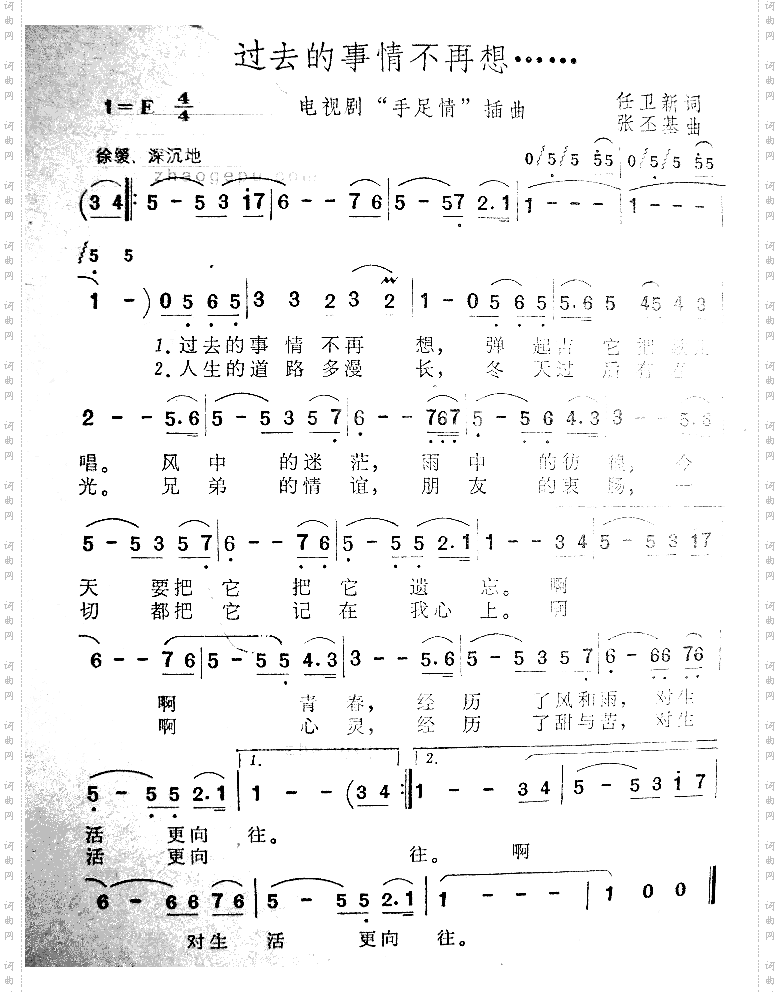 过去的事情不再想……
1=E 4/4
电视剧“手足情”插曲
任卫新词
张丕基曲
徐缓、深沉地
zhaogepu.com
0/5/5 55 | 0/5/5 55
(3 4 ‖: 5 - 5 3 i7 | 6 - - 7 6 | 5 - 57 2.1 | 1 - - - | 1 - - -
5 5
1 - ) 0 5 6 5 | 3 3 2 3 2 | 1 - 0 5 6 5 | 5.65 45 4 3
1.过去的事情不再想，弹起吉它把
2.人生的道路多漫长，冬天过后有
2 - - 5.6 | 5 - 5 3 5 7 | 6 - - 767 | 5 - 5 6 4.3 | 3 - - 5.6
唱。风中的迷茫，雨中的彷徨，今
光。兄弟的情谊，朋友的衷肠，一
5 - 5 3 5 7 | 6 - - 7 6 | 5 - 5 5 2.1 | 1 - - 3 4 | 5 - 5 3 17
天要把它把它遗忘。啊
切都把它记在我心上。啊
6 - - 7 6 | 5 - 5 5 4.3 | 3 - - 5.6 | 5 - 5 3 5 7 | 6 - 66 76
啊青春，经历了风和雨，对生
啊心灵，经历了甜与苦，对生
1. 2.
5 - 5 5 2.1 | 1 - - (3 4 :‖ 1 - - 3 4 | 5 - 5 3 i 7
活更向往。
活更向往。啊
6 - 6 6 7 6 | 5 - 5 5 2.1 | 1 - - - | 1 0 0 ‖
对生活更向往。
词曲网